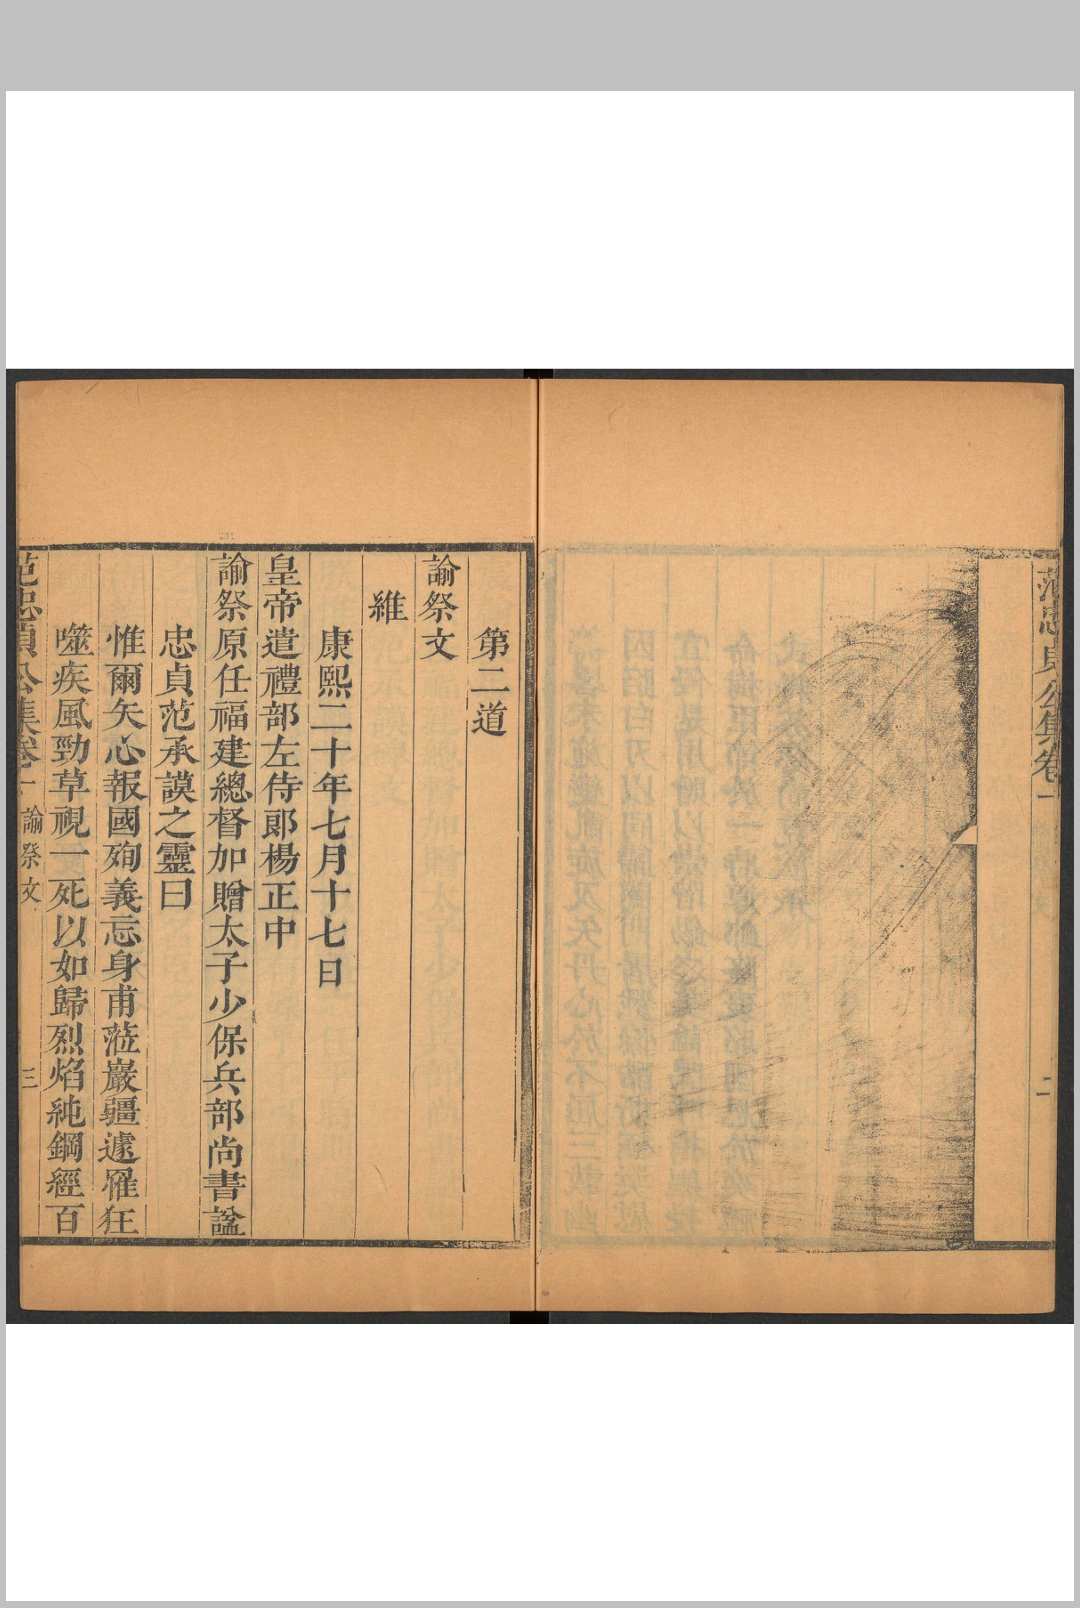 范忠貞公集卷一
二
第二道
諭祭文
維
康熙二十年七月十七日
皇帝遣禮部左侍郎楊正中
諭祭原任福建總督加贈太子少保兵部尚書諡
忠貞范承謨之靈曰
惟爾矢心報國殉義忘身甫蒞巖疆遽罹狂
噬疾風勁草視一死以如歸烈焰純鋼經百
范忠貞公集卷一 諭祭文 三